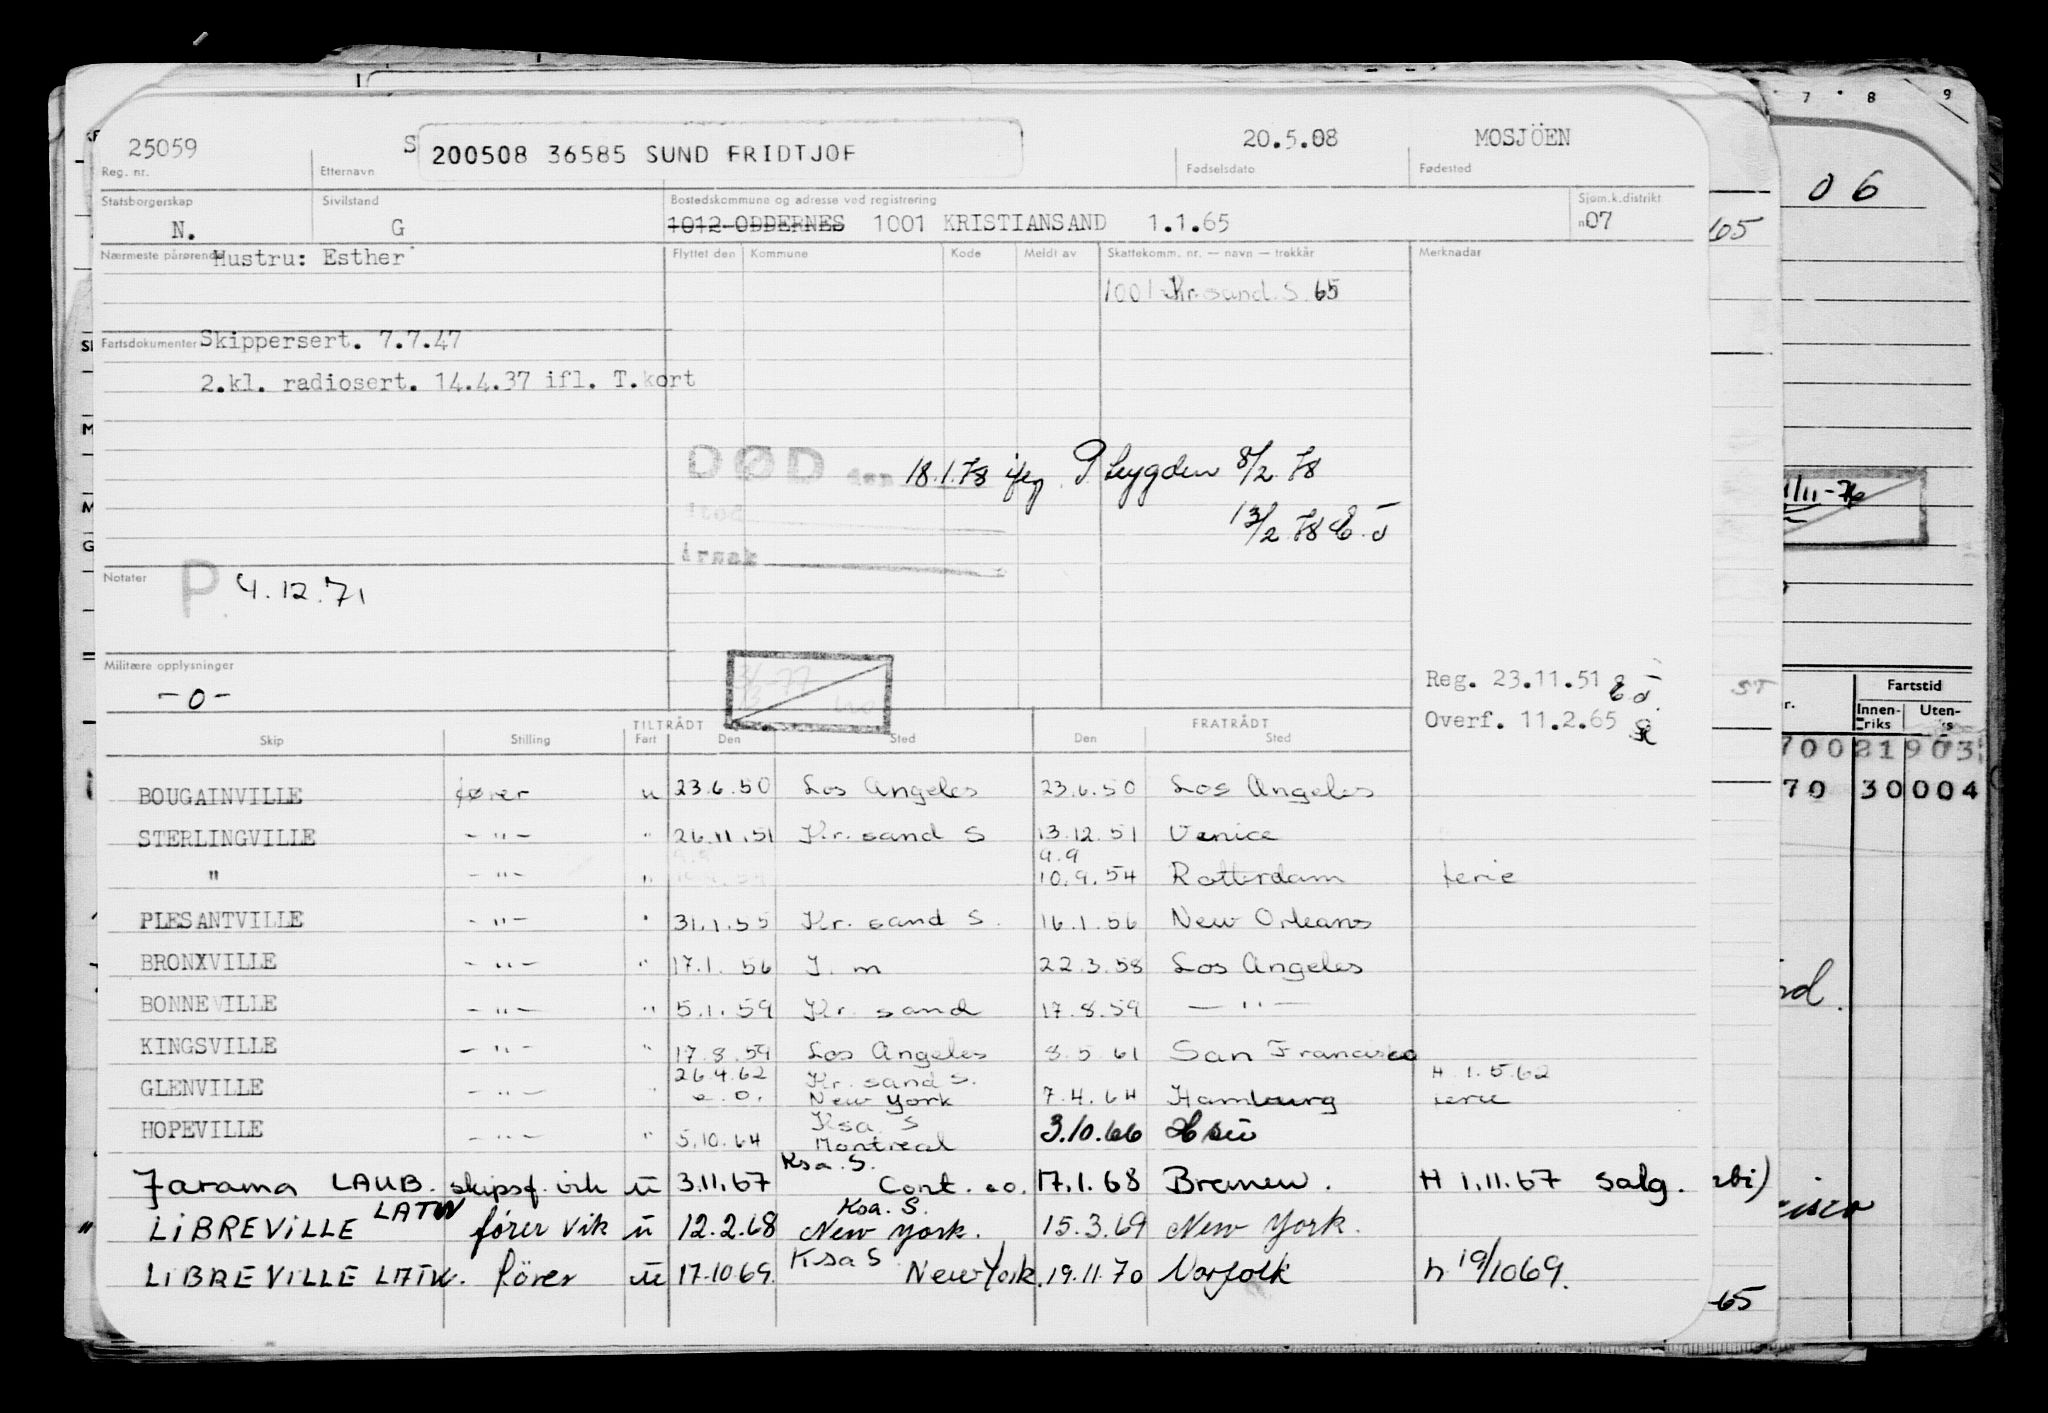 25059 S 200508 36585 SUND FRIDTJOF 20.5.08 MOSJÖEN
Reg. nr. Etternavn Fødselsdato Fødested
Statsborgerskap Sivilstand Bostedskommune og adresse ved registrering Sjøm.k.distrikt
N. G 1012 ODDERNES 1001 KRISTIANSAND 1.1.65 07
Nærmeste pårørende Hustru: Esther Flyttet den Kommune Kode Meldt av Skattekomm. nr. — navn — trekkår Merknader
1001 Kr.sand.S 65
Fartsdokumenter Skippersert. 7.7.47
2.kl. radiosert. 14.4.37 ifl. T.kort
DØD den 18.1.78 iflg. 8/2 78
sted 13/2 78
årsak
Notater P 4.12.71
Militære opplysninger
-0-
Reg. 23.11.51
Overf. 11.2.65
TILTRÅDT FRATRÅDT
Skip Stilling Fart Den Sted Den Sted
BOUGAINVILLE fører u 23.6.50 Los Angeles 23.6.50 Los Angeles
STERLINGVILLE -"- " 26.11.51 Kr.sand S 13.12.51 Venice
9.9
" -"- " 10.9.54 Rotterdam ferie
PLESANTVILLE -"- " 31.1.55 Kr.sand S. 16.1.56 New Orleans
BRONXVILLE -"- " 17.1.56 22.3.58 Los Angeles
BONNEVILLE -"- " 5.1.59 Kr.sand 17.8.59 -"-
KINGSVILLE -"- " 17.8.59 Los Angeles 8.5.61 San Francisco
26.4.62 Kr.sand S. H 1.5.62
GLENVILLE -"- " e.o. New York 7.4.64 Hamburg ferie
Ksa S
HOPEVILLE -"- " 5.10.64 Montreal 3.10.66
Ksa. S.
Jarama LAUB. skipsf. vik u 3.11.67 Cont. eo. 17.1.68 Bremen. H 1.11.67 salg.
Ksa. S.
" LIBREVILLE LATW fører vik u 12.2.68 New York. 15.3.69 New York.
Ksa S
LIBREVILLE LATW. fører u 17.10.69 New York. 19.11.70 Norfolk h 19/10 69.
7 8 9
06
65
1/11-76
ST
Fartstid
Innenriks Uten-
7002190 3
70 30004
65